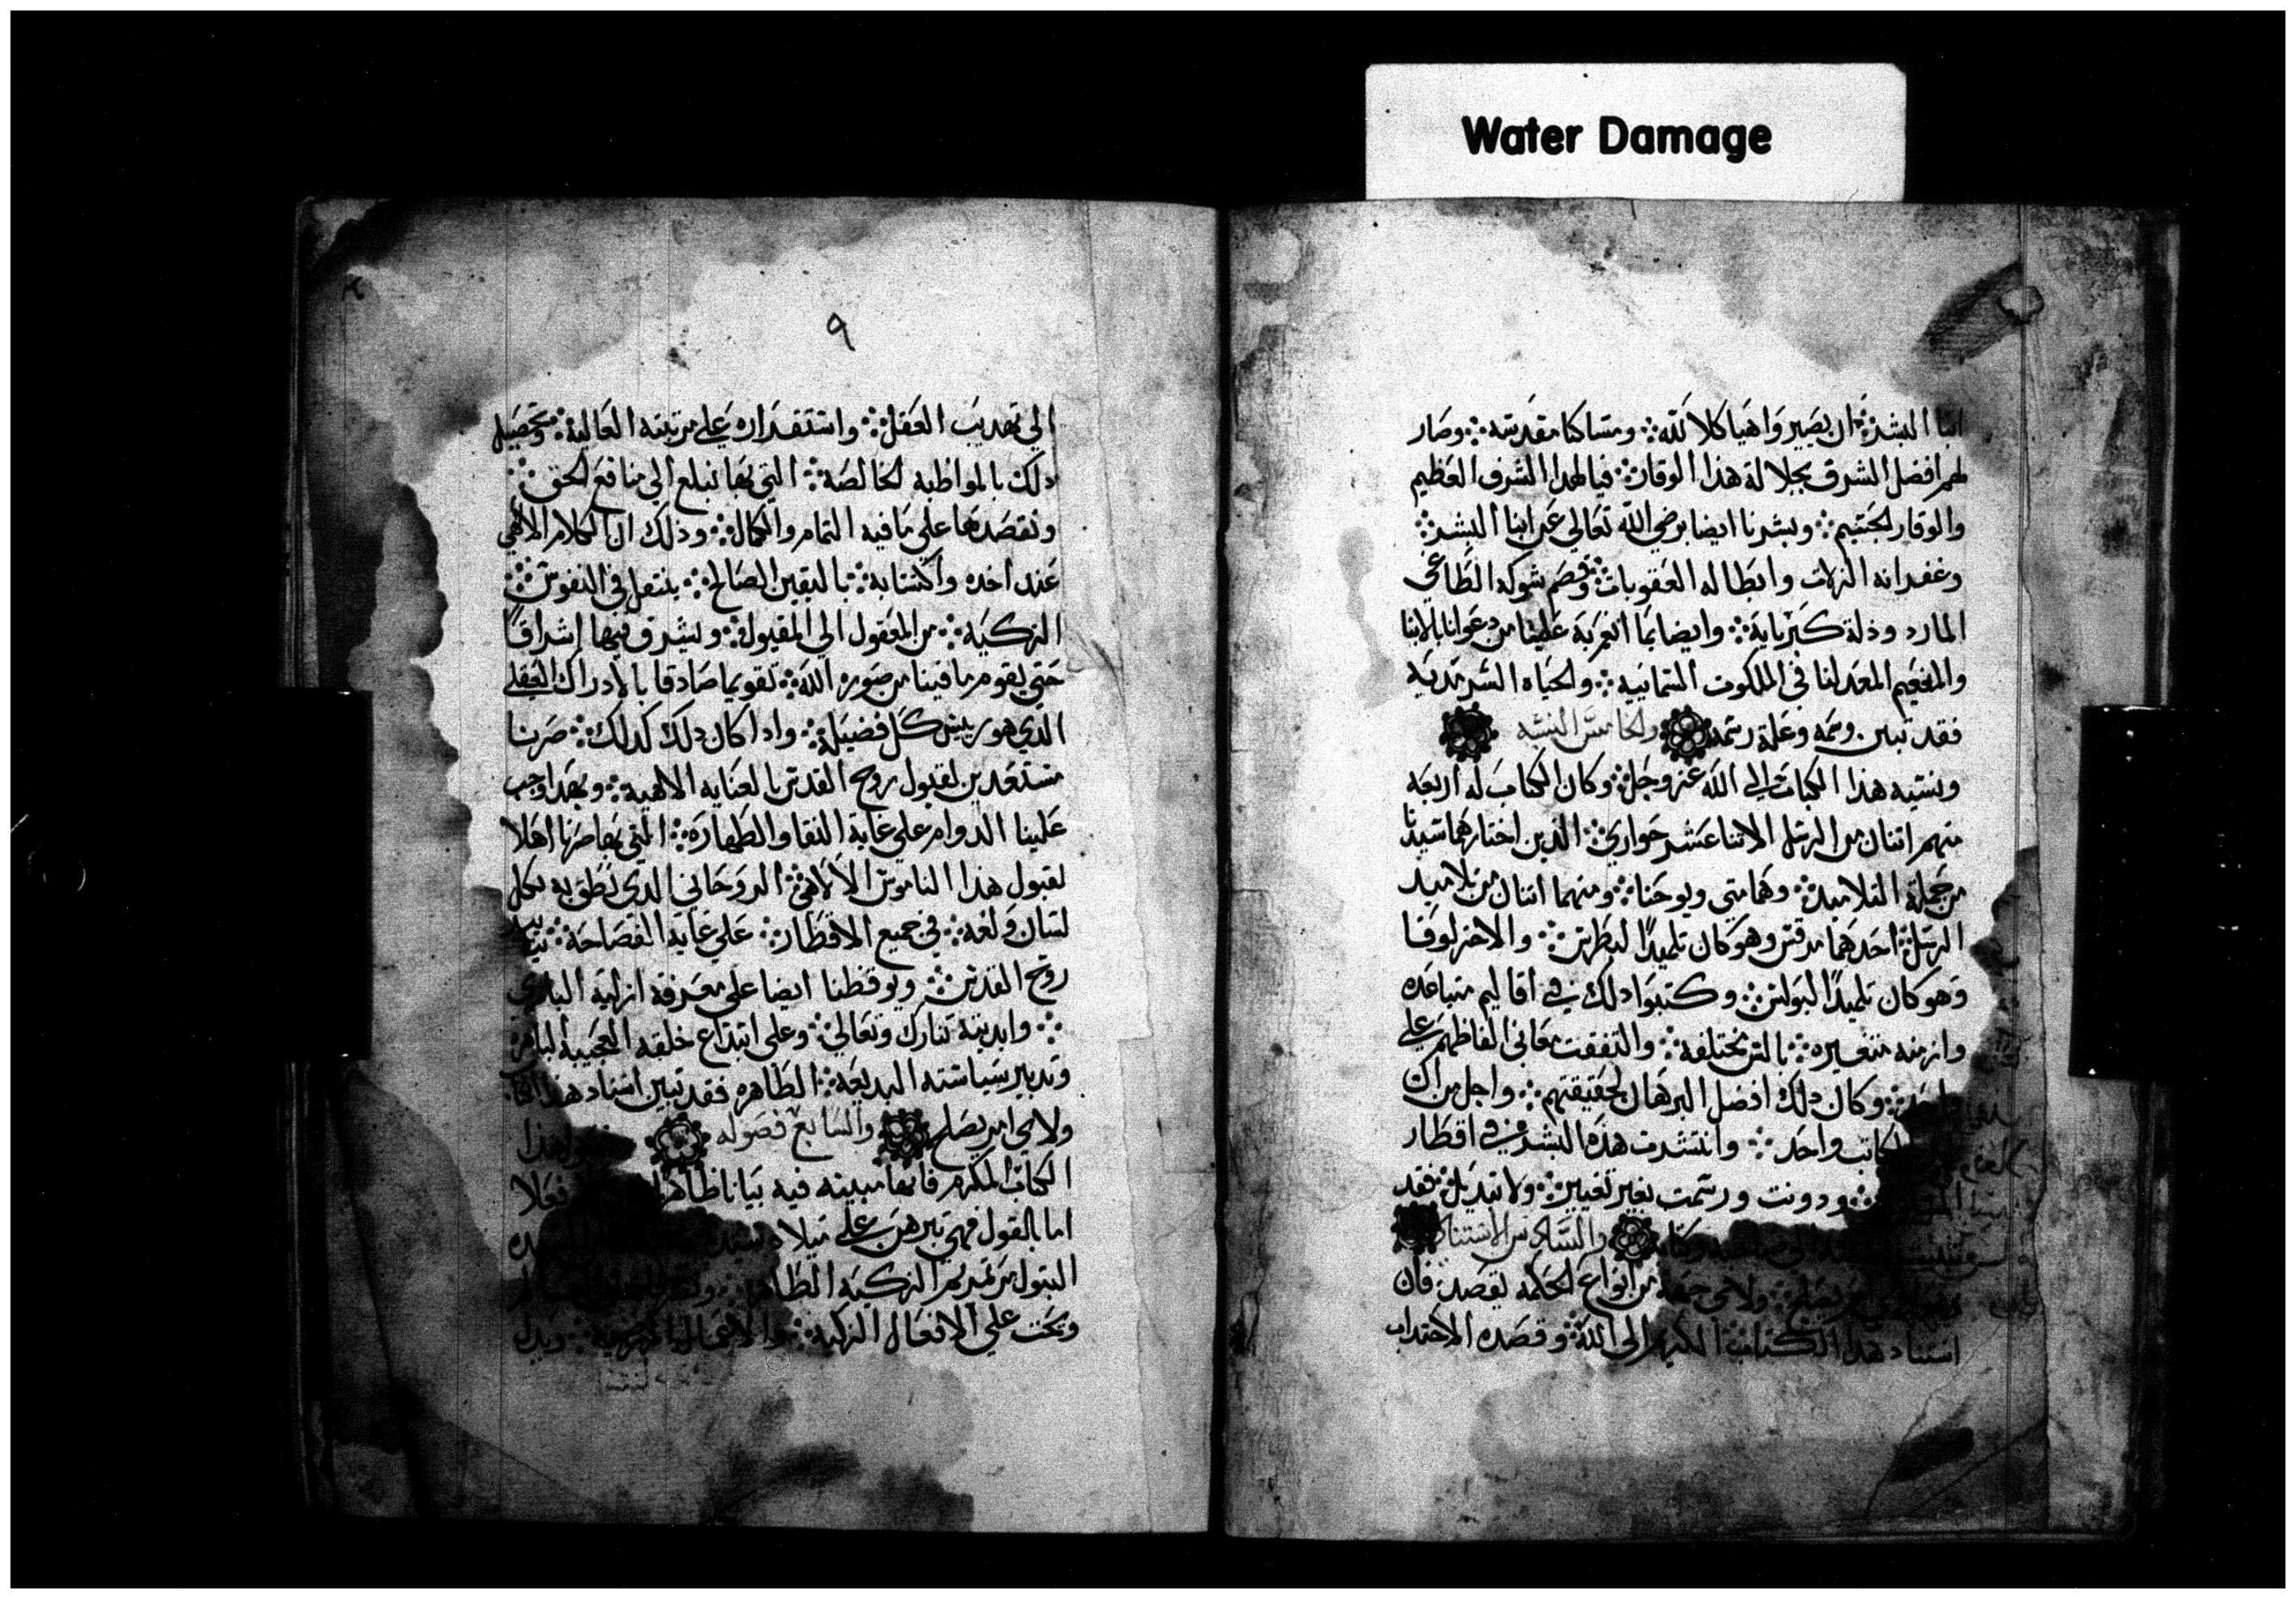 Water Damage
ابنا البشر ان يصير واهبا كلا لله ومساكنا مقدسه وصار
لهم افضل الشرف بجلالة هذا الوقار فيا لهدا الشرف العظيم
والوقار الجسيم وبشرنا ايضا برضي الله تعالي عن ابنا البشر
وغفرانه الزلات وابطاله العقوبات وقصم شوكه الطاغي
المارد وذلة كبريايه وايضا بما انعم به علينا من دعوانا بالابنا
والنعيم المعد لنا في الملكوت السمايية والحياه السرمدية
فقد تبين وسمه وعلة رسمه والخامس النسبه
ونسبه هذا الكتاب الي الله عز وجل وكان الكتاب له اربعه
منهم اتنان من الرسل الاتنا عشر حواري الذين اختارهما سيدنا
من جملة التلاميد وهما متي ويوحنا ومنهما اتنان من تلاميد
الرسل احدهما مرقس وهو كان تلميدًا لبطرس والاخر لوقا
وهو كان تلميدًا لبولس وكتبوا دلك في اقاليم متباعده
وازمنه متغيره بالسن مختلفه واتفقت معاني الفاظهم علي
وكان دلك افضل البرهان لحقيقتهم واجل من ان
الكاتب واحد وانتشرت هذه البشري في اقطار
ودونت ورسمت بغير تغيير ولا تبديل فقد
والسادس الاستناد
ولاي جهة من انواع الحكمه يقصد فان
استناد هدا الكتاب الكريم الى الله وقصده الاجتداب
٩
الي تهديب العقل واستقراره علي مرتبته العالية وتحصيل
دلك بالمواظبه الخالصه التي بها نبلغ الي منافع الحق
ونقصدها علي ما فيه التمام والكمال وذلك ان الكلام الالهي
عند اخده واكتسابه باليقين الصالح ينتقل في النفوس
الزكيه من المعقول الي المقبول ويشرق فيها إشراقًا
حتي يقوم ما فينا من صوره الله تقويما صادقا بالادراك العقلي
الدي هو رييس كل فضيلة وادا كان دلك كدلك صرنا
مستعدين لقبول روح القدس بالعنايه الالهيه وبهدا وجب
علينا الدوام علي غاية النقا والطهارة التي بها صرنا اهلا
لقبول هذا الناموس الالاهي الروحاني الدي نطق به بكل
لسان ولغه في جميع الاقطار علي غاية الفصاحة
روح القدس ويوقظنا ايضا علي معرفة ازلية الباري
وابديته تبارك وتعالي وعلي ابتداع خلقه العجيبة الباهرة
وتدبير سياسته البديعة الطاهره فقد تبين اسناد هذا
ولاي امر يصلح والسابع فصوله هذا
الكتاب المكرم فانها مبينه فيه بيانا ظاهرا فعلا
اما بالقول فهي تبرهن علي ميلاد
البتول مرتمريم الزكيه الطاهره
وتحت علي الافعال الزكيه والاعمال ويدل